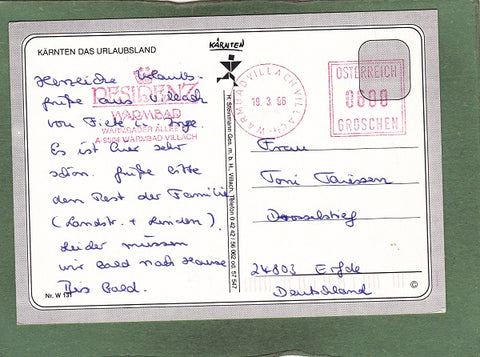 KÄRNTEN DAS URLAUBSLAND
KÄRNTEN
Herzliche Urlaubs-
grüße aus Villach
von Fiete u. Inge
Es ist hier sehr
schön. Grüße bitte
den Rest der Familie
(Landstr. + Linden).
Leider müssen
wir bald nach Hause
Bis bald.
Nr. W 131
RESIDENZ
WARMBAD
WARMBADER ALLEE
A-9504 WARMBAD-VILLACH
WARMBAD VILLACH
19.3.96
ÖSTERREICH
0600
GROSCHEN
Ges. m. b. H., Villach, Telefon 0 42 42 / 56 0 62 od. 57 5 47
Frau
Toni
Drosselstieg
24803 Erfde
Deutschland
©